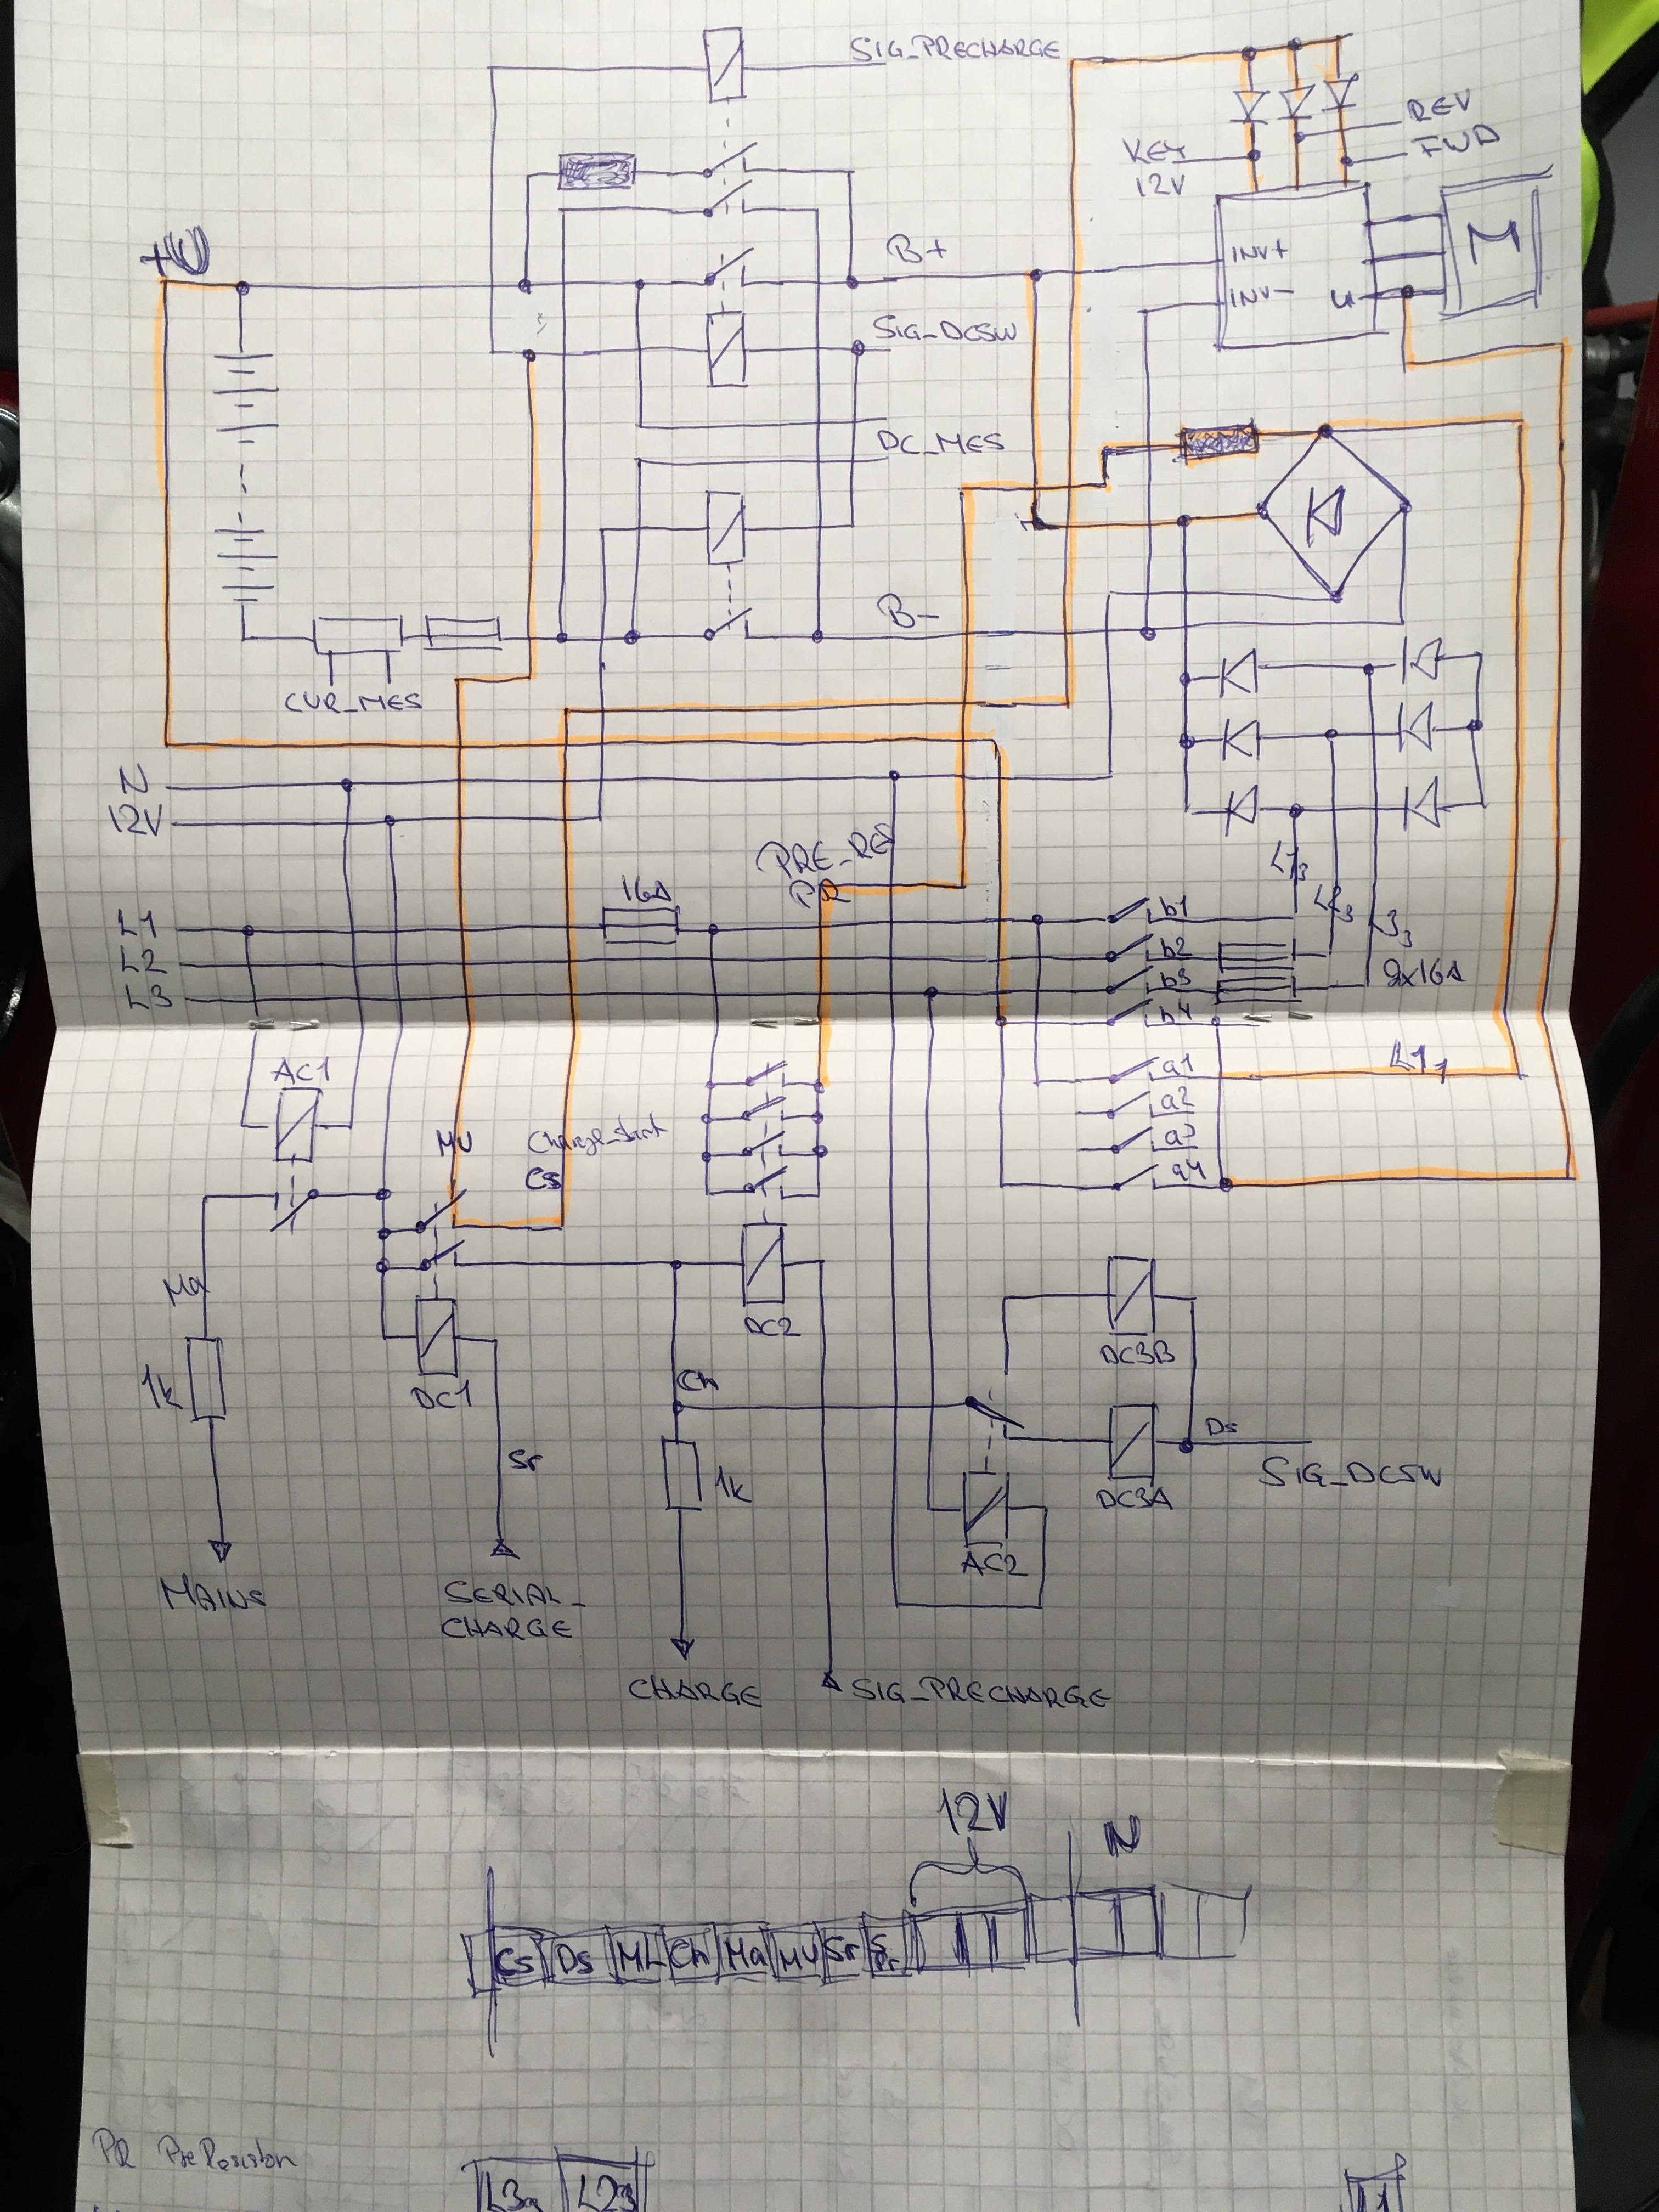 SIG_PRECHARGE
REV
FWD
KEY
12V
+U
B+
INV+
INV-
U
M
SIG_DCSW
DC_MES
B-
CUR_MES
N
12V
PRE_RES
PR
16A
L1
L2
L3
b1
b2
b3
b4
L1₃
L2₃
L3₃
2x16A
AC1
a1
a2
a3
a4
L1₁
MU
Charge_start
Cs
Ma
1k
DC1
DC2
DC3B
Ch
Sr
1k
Ds
SIG_DCSW
DC3A
AC2
MAINS
SERIAL_
CHARGE
CHARGE
SIG_PRECHARGE
12V
N
Cs Ds ML Ch Ma MU Sr
PR PreResistor